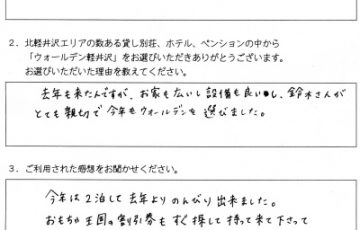 2．北軽井沢エリアの数ある貸し別荘、ホテル、ペンションの中から
「ウォールデン軽井沢」をお選びいただきありがとうございます。
お選びいただいた理由を教えてください。
去年も来たんですが、お家も広いし設備も良いし、鈴木さんが
とても親切で今年もウォールデンを選びました。
3．ご利用された感想をお聞かせください。
今年は2泊して去年よりのんびり出来ました。
おもちゃ王国の割引券もすぐ探して持って来て下さって